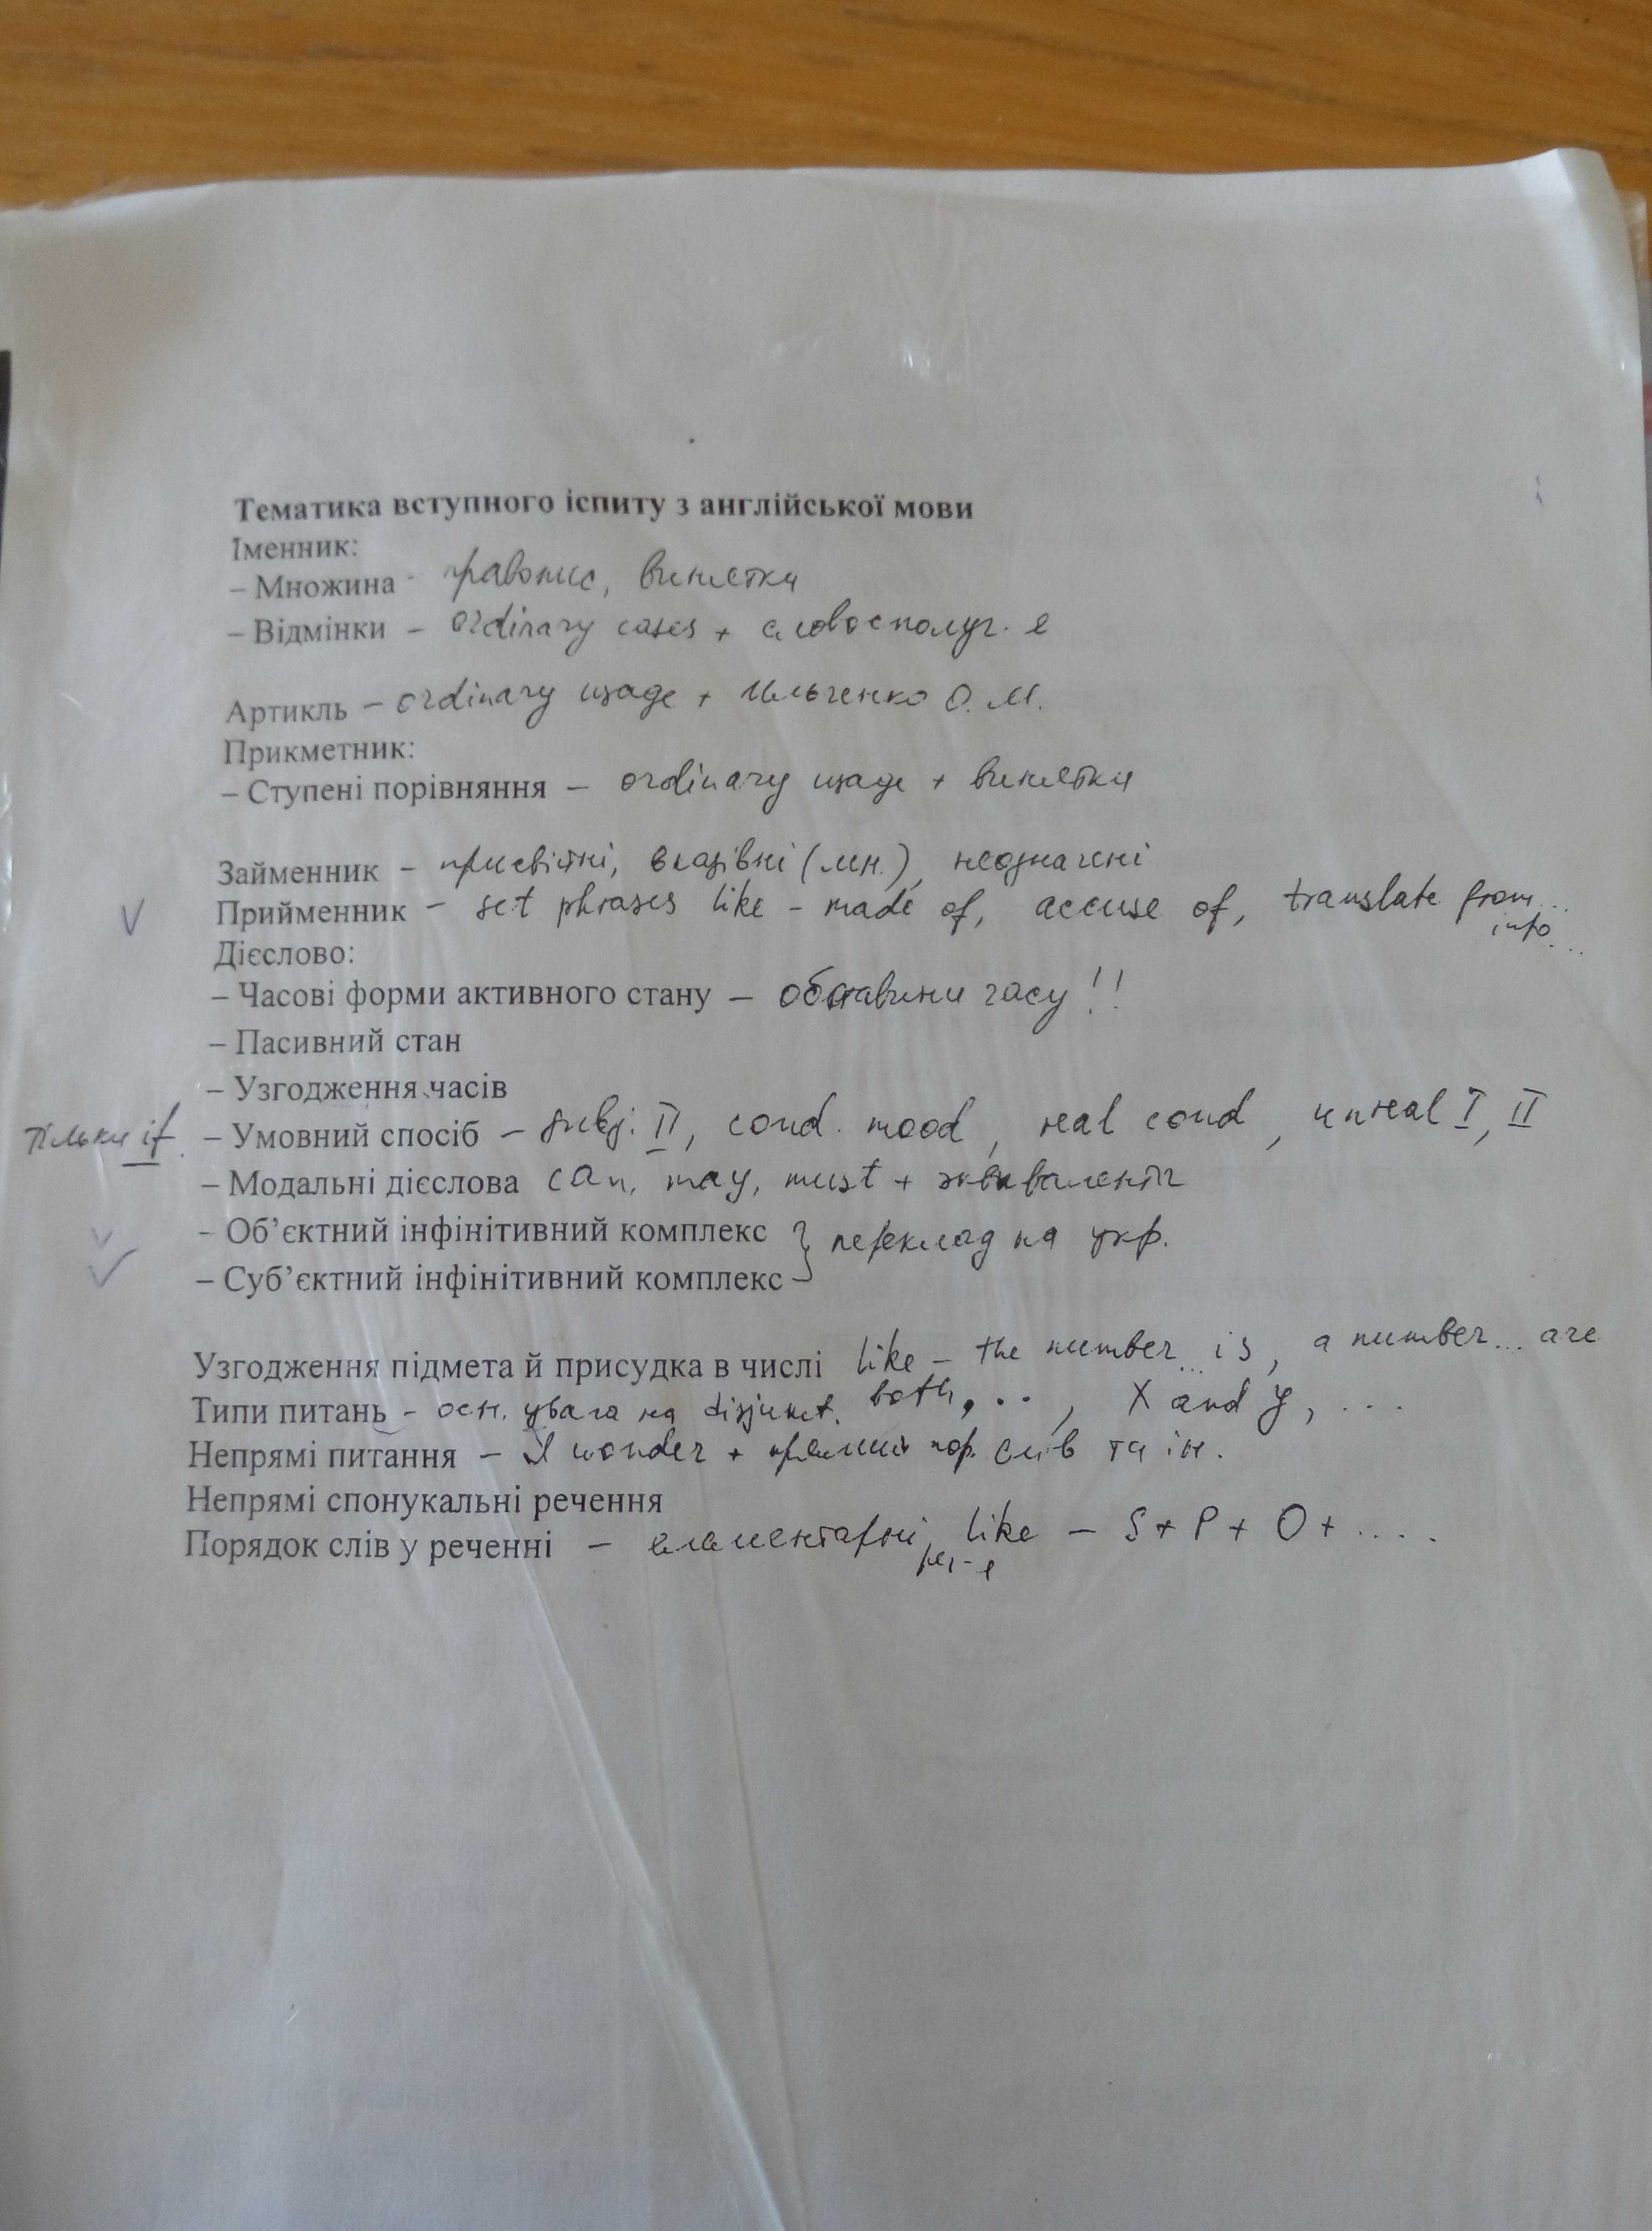 Тематика вступного іспиту з англійської мови
Іменник:
– Множина - правопис, винятки
– Відмінки – ordinary cases + словосполуч.
Артикль – ordinary usage + Ильченко О. М.
Прикметник:
– Ступені порівняння – ordinary usage + винятки
Займенник – присвійні, вказівні (мн.), неозначені
V Прийменник – set phrases like – made of, accuse of, translate from...
into...
Дієслово:
– Часові форми активного стану – обставини часу!!
– Пасивний стан
– Узгодження часів
Тільки if – Умовний спосіб – subj. II, cond. mood, real cond, unreal I, II
– Модальні дієслова can, may, must + эквиваленти
– Об’єктний інфінітивний комплекс } переклад на укр.
– Суб’єктний інфінітивний комплекс
Узгодження підмета й присудка в числі like – the number... is, a number... are
both, ..., X and Y, ...
Типи питань – осн. увага на disjunct.
Непрямі питання – I wonder + прямий пор. слів та ін.
Непрямі спонукальні речення
Порядок слів у реченні – елементарні реч-я like – S + P + O + ....